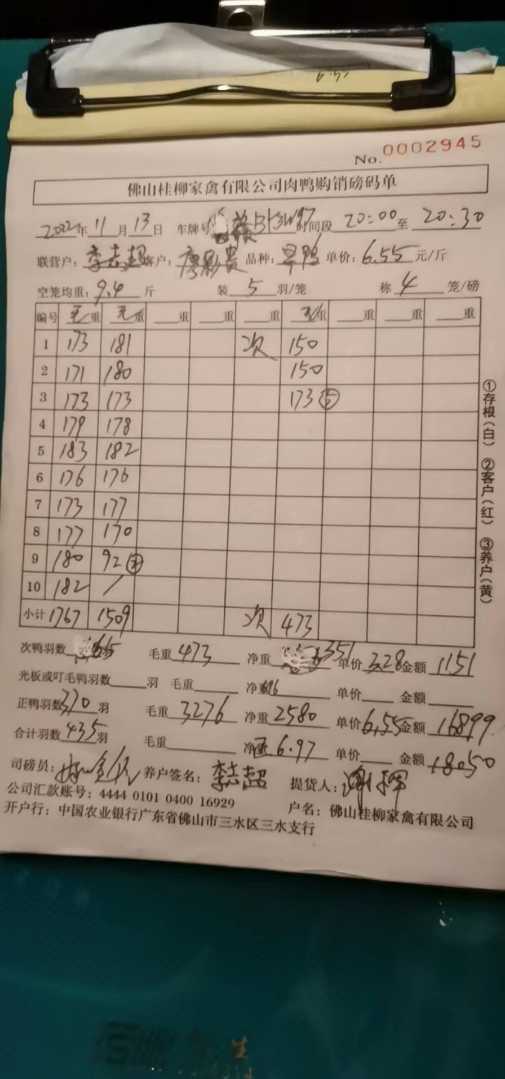 No. 0002945
佛山桂柳家禽有限公司肉鸭购销磅码单
2022年 11 月 13 日 车牌号 时间段 20:00 至 20:30
联营户: 李志超 客户: 廖影贵 品种: 单价: 6.55 元/斤
空笼均重: 9.4 斤 装 5 羽/笼 称 4 笼/磅
编号 毛重 毛重 重 重 重 毛重 重 重 重
1 173 181 次 150
2 171 180 150
3 173 173 173 ⑤
4 179 178
5 183 182
6 176 176
7 173 177
8 177 170
9 180 92
10 182 /
小计 1767 1509 次 473
次鸭羽数 65 毛重 473 净重 351 单价 3.28 金额 1151
光板或叮毛鸭羽数 羽 毛重 净重 单价 金额
正鸭羽数 370 羽 毛重 3276 净重 2580 单价 6.55 金额 16899
合计羽数 435 羽 毛重 净重 6.97 单价 金额 18050
司磅员: 养户签名: 李志超 提货人:
公司汇款账号: 4444 0101 0400 16929 户名: 佛山桂柳家禽有限公司
开户行: 中国农业银行广东省佛山市三水区三水支行
①存根(白) ②客户(红) ③养户(黄)